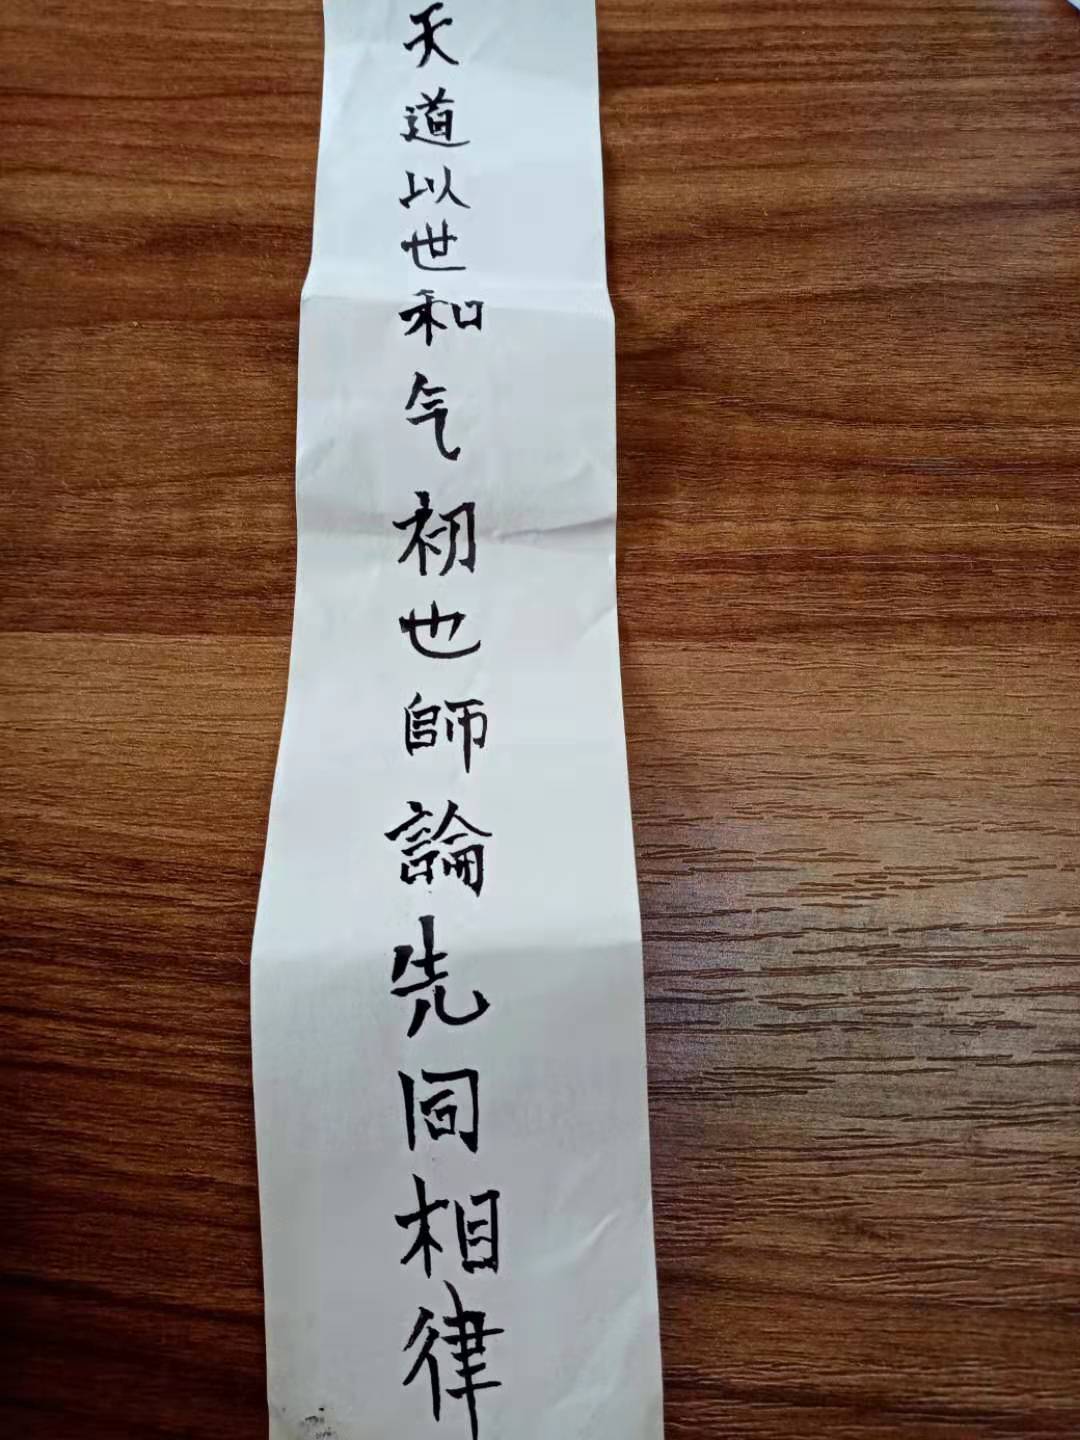 天道以世和气初也師論先同相律